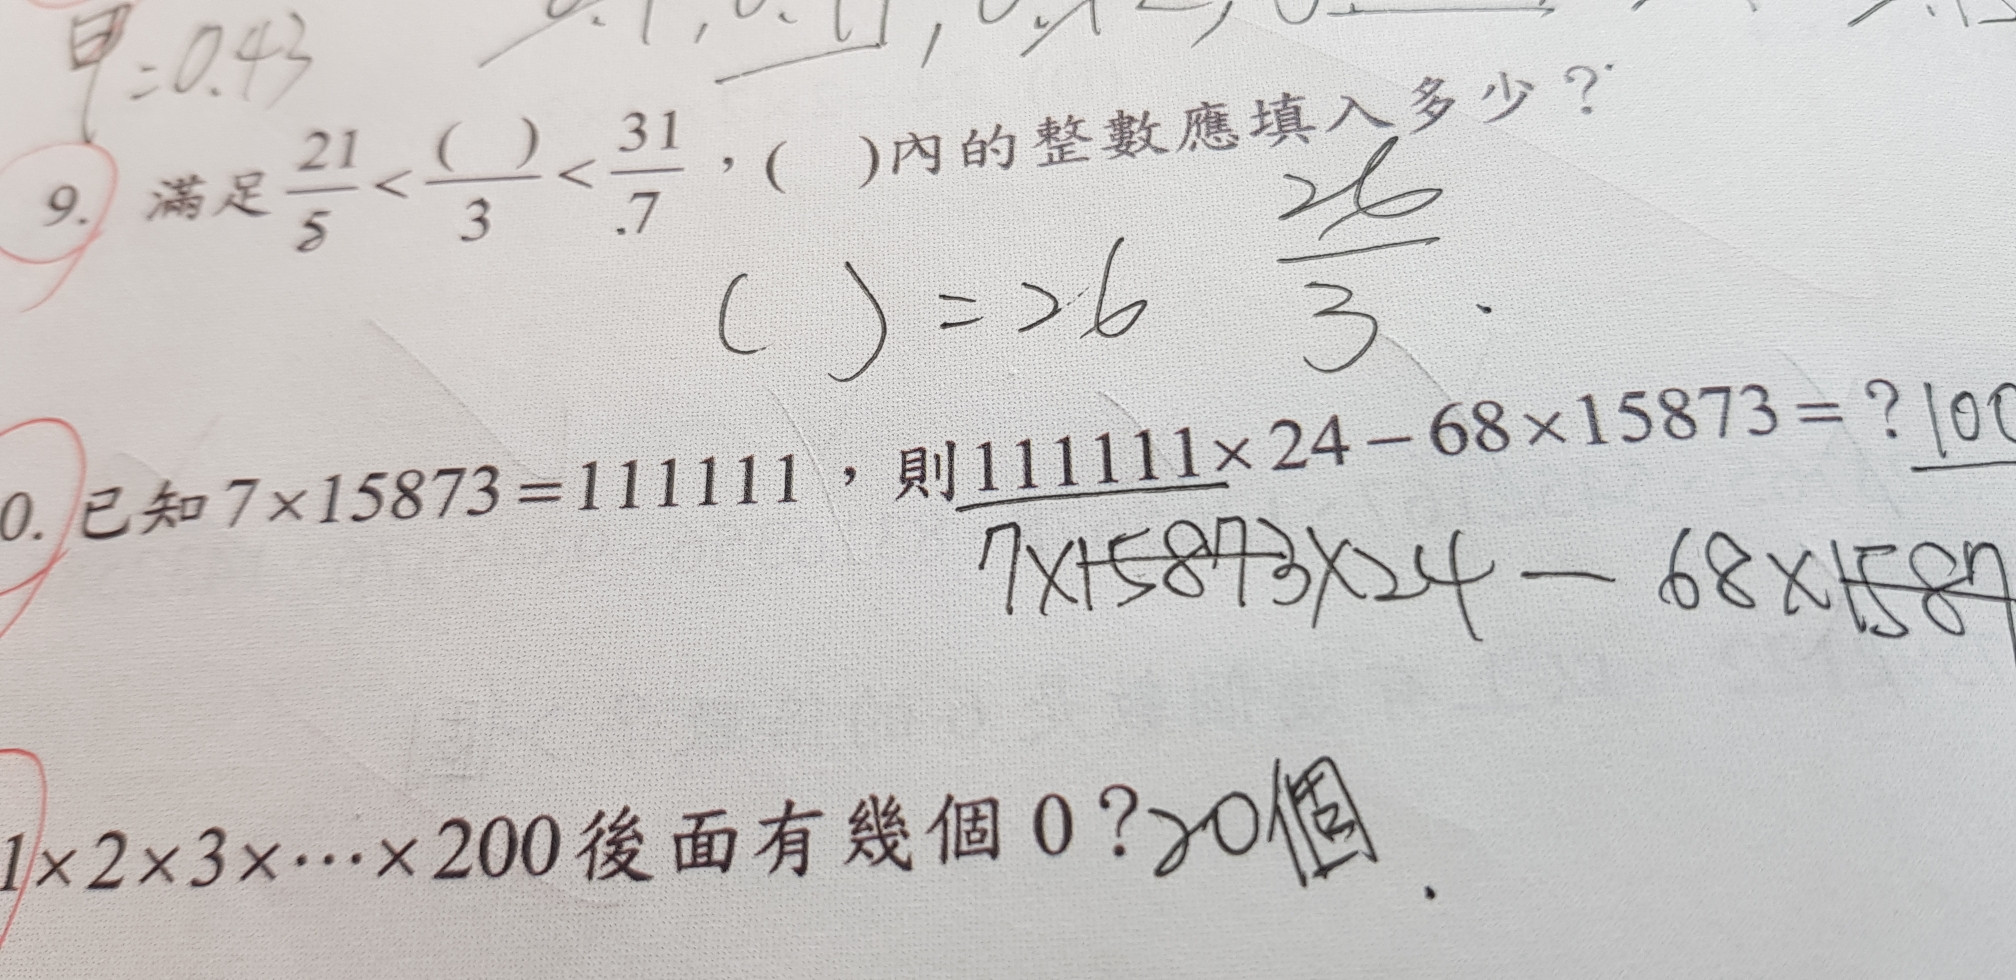 甲=0.43
9. 滿足 21/5 < ( )/3 < 31/7，( )內的整數應填入多少？
26/3
( )=26
0. 已知7×15873=111111，則111111×24−68×15873=？100
7×15873×24 − 68×1587
1×2×3×⋯×200後面有幾個0？20個